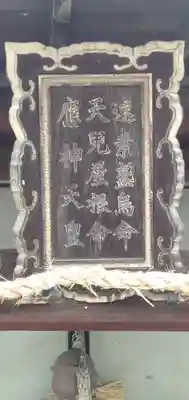 速素盞烏命
天兒屋根命
應神天皇